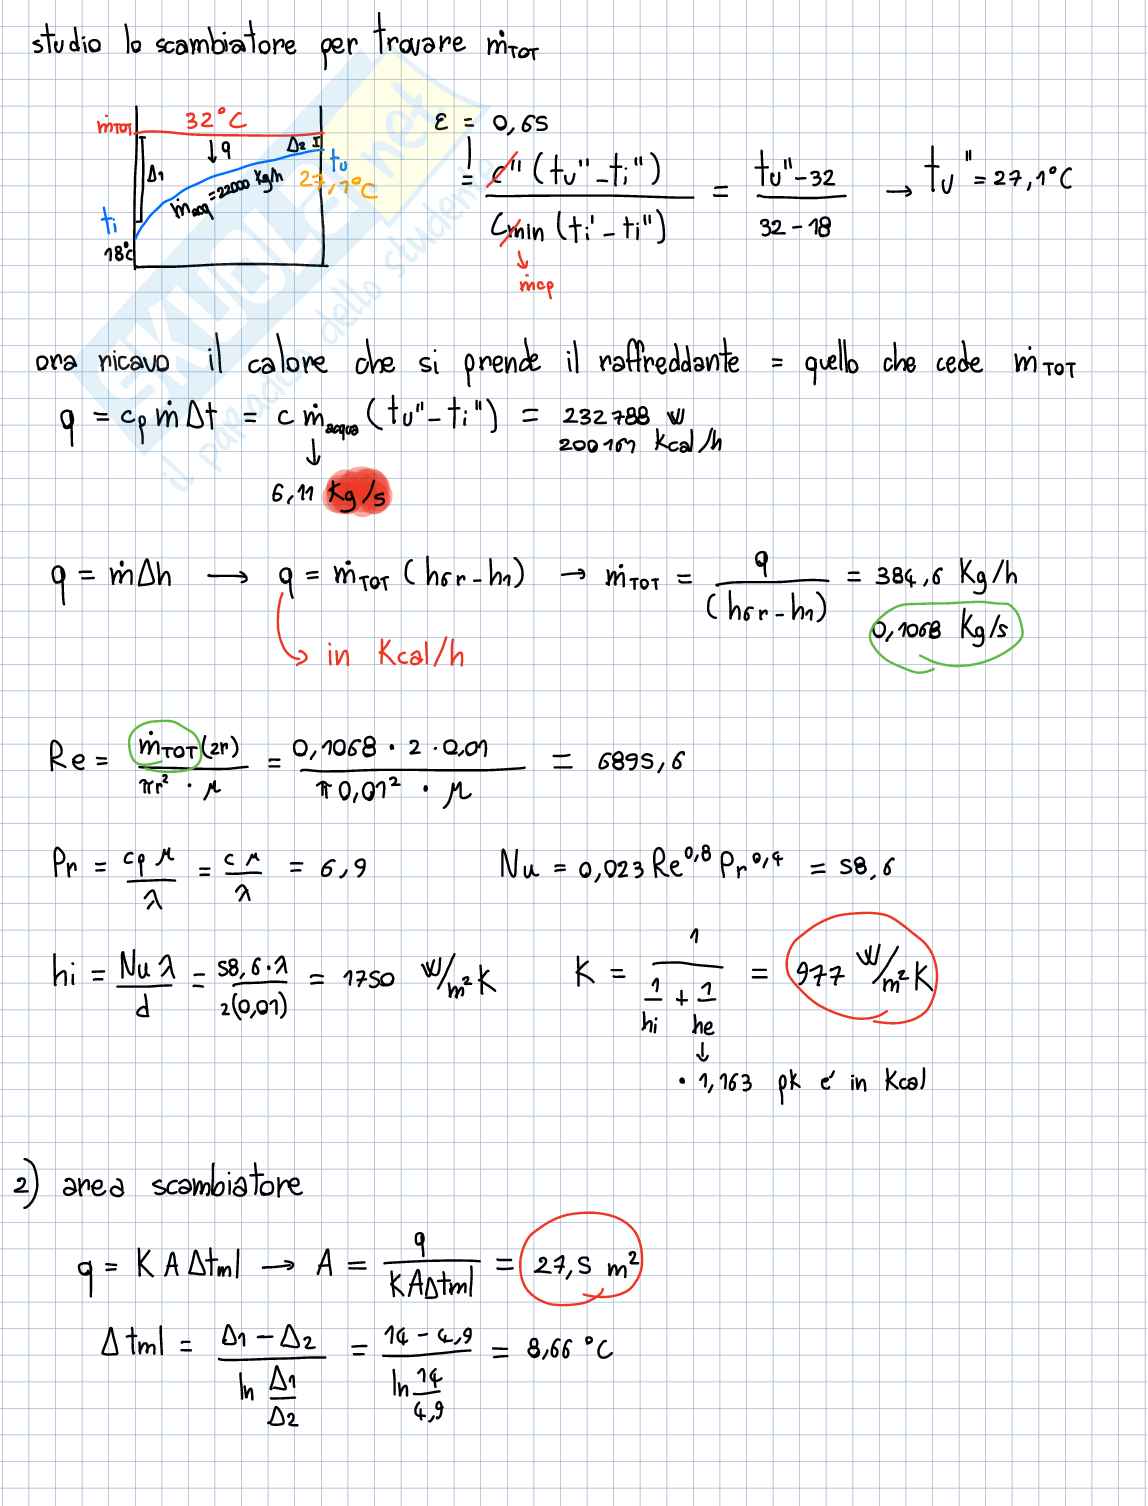 studio lo scambiatore per trovare ṁTOT
ṁTOT 32°C
↓q Δ2
Δ1 tu
ṁacq = 22000 Kg/h 27,1°C
ti
18°C
ε = 0,65
= c'' (tu'' - ti'') / Cmin (ti' - ti'') = tu'' - 32 / 32 - 18 → tu'' = 27,1°C
↓
ṁcp
ora ricavo il calore che si prende il raffreddante = quello che cede ṁTOT
q = cp ṁ Δt = c ṁacqua (tu'' - ti'') = 232788 W
200167 Kcal/h
↓
6,11 Kg/s
q = ṁΔh → q = ṁTOT (h6r - h1) → ṁTOT = q / (h6r - h1) = 384,6 Kg/h
0,1068 Kg/s
in Kcal/h
Re = ṁTOT (2r) / πr² · μ = 0,1068 · 2 · 0,01 / π 0,01² · μ = 6895,6
Pr = cp μ / λ = c μ / λ = 6,9 Nu = 0,023 Re^0,8 Pr^0,4 = 58,6
hi = Nu λ / d = 58,6 · λ / 2(0,01) = 1750 W/m²K K = 1 / (1/hi + 1/he) = 977 W/m²K
↓
· 1,163 pk e' in Kcal
2) area scambiatore
q = K A Δtml → A = q / KAΔtml = 27,5 m²
Δtml = Δ1 - Δ2 / ln Δ1/Δ2 = 14 - 4,9 / ln 14/4,9 = 8,66 °C
SKUOLA.net
il paradiso dello studente